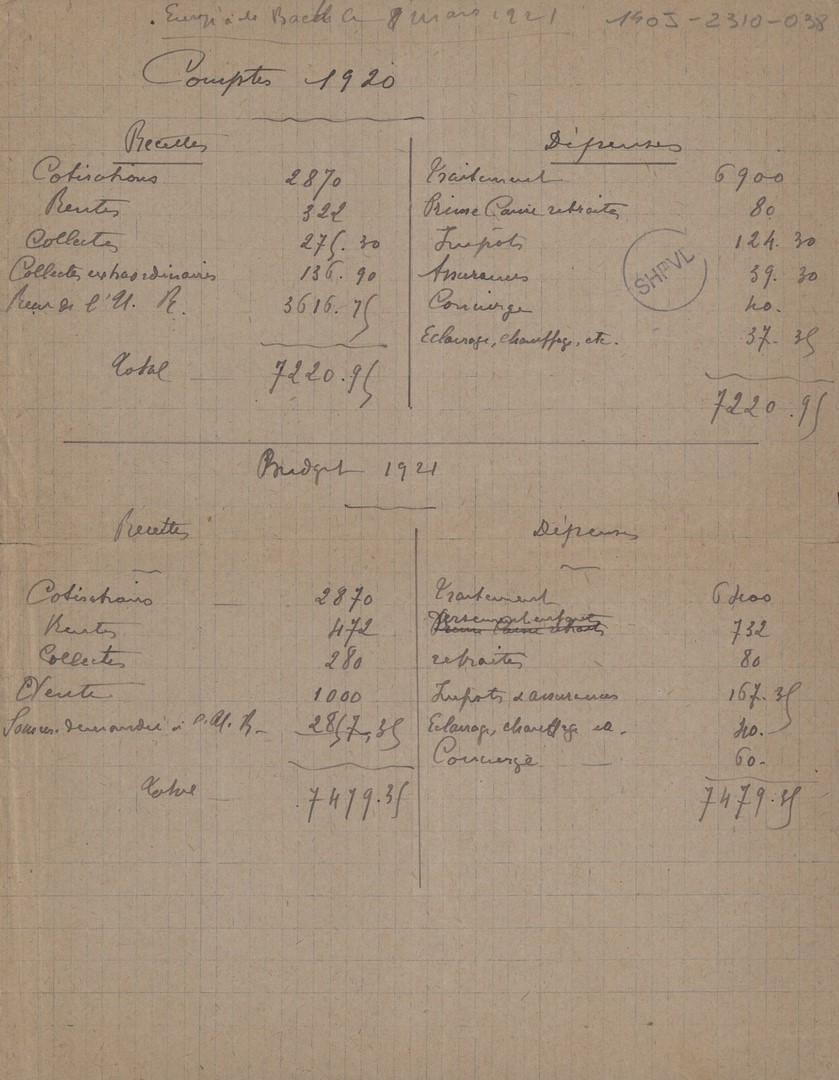 Envoyé à de Bach le 8 mars 1921 190J-2310-038
Comptes 1920
Recettes
Cotisations 2870
Rentes 322
Collectes 275.30
Collectes extraordinaires 136.90
Reçu de l'U. R. 3616.75
Total 7220.95
Dépenses
Traitement 6900
Prime Caisse retraites 80
Impôts 124.30
Assurances 39.30
Concierge 40.
Eclairage, chauffage, etc. 37.35
7220.95
SHPVL
Budget 1921
Recettes
Cotisations 2870
Rentes 472
Collectes 280
Vente 1000
Somme demandée à l'U. R. 2857,35
Total 7479.35
Dépenses
Traitement 6400
732
retraites 80
Impots & assurances 167.35
Eclairage, chauffage 40.
Concierge 60.
7479.35